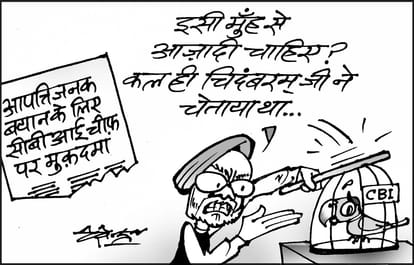 इसी मुँह से
आज़ादी चाहिए?
कल ही चिदंबरम् जी ने
चेताया था...
आपत्तिजनक
बयान के लिए
सीबीआई चीफ़
पर मुकदमा
CBI